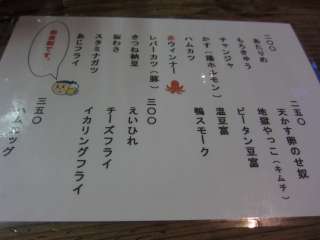 二〇〇
あたりめ
もろきゅう
チャンジャ
かす(腸ホルモン)
ハムカツ
赤ウィンナー
レバーカツ(豚)
きつね納豆
板わさ
スタミナガツ
あじフライ
です。
二五〇
天かす卵のせ奴
地獄やっこ(キムチ)
ピータン豆富
温豆富
鴨スモーク
三〇〇
えいひれ
チーズフライ
イカリングフライ
三五〇
ハムエッグ